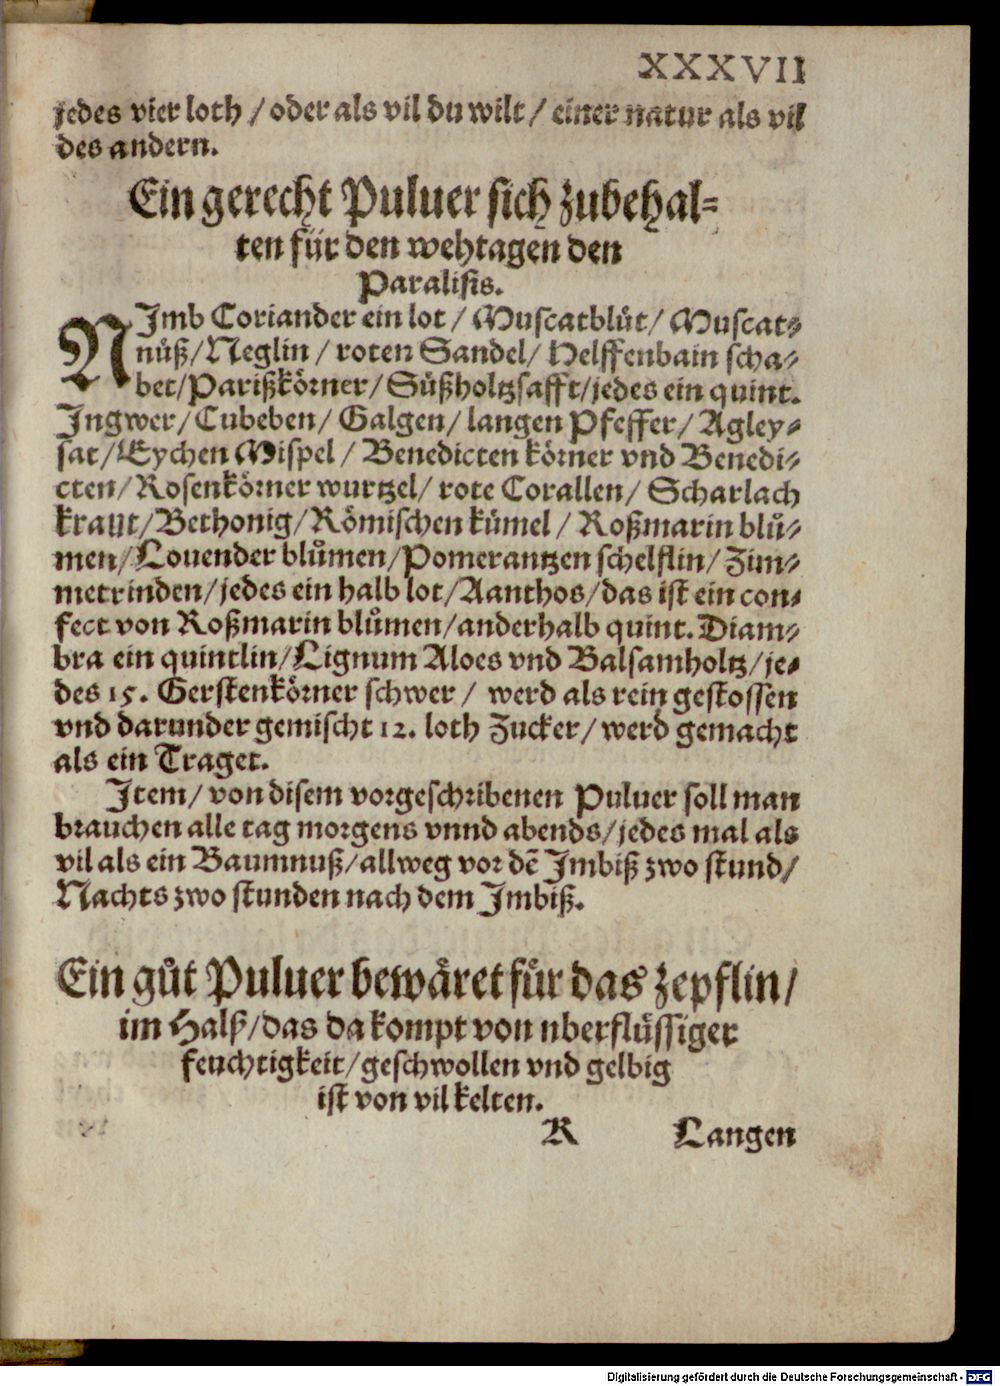 XXXVII
jedes vier loth / oder als vil du wilt / einer natur als vil
des andern.
Ein gerecht Puluer sich zubehal⸗
ten für den wehtagen den
Paralisis.
NImb Coriander ein lot / Muscatblůt / Muscat⸗
nüß / Neglin / roten Sandel / Helffenbain scha⸗
bet / Parißkörner / Süßholtzsafft / jedes ein quint.
Ingwer / Cubeben / Galgen / langen Pfeffer / Agley⸗
sat / Eychen Mispel / Benedicten körner vnd Benedi⸗
cten / Rosenkörner wurtzel / rote Corallen / Scharlach
kraut / Bethonig / Römischen kümel / Roßmarin blů⸗
men / Louender blůmen / Pomerantzen schelflin / Zim⸗
metrinden / jedes ein halb lot / Aanthos / das ist ein con⸗
fect von Roßmarin blůmen / anderhalb quint. Diam⸗
bra ein quintlin / Lignum Aloes vnd Balsamholtz / je⸗
des 15. Gerstenkörner schwer / werd als rein gestossen
vnd darunder gemischt 12. loth Zucker / werd gemacht
als ein Traget.
Item / von disem vorgeschribenen Puluer soll man
brauchen alle tag morgens vnnd abends / jedes mal als
vil als ein Baumnuß / allweg vor dē Imbiß zwo stund /
Nachts zwo stunden nach dem Imbiß.
Ein gůt Puluer bewäret für das zepflin /
im Halß / das da kompt von uberflüssiger
feuchtigkeit / geschwollen vnd gelbig
ist von vil kelten.
K Langen
Digitalisierung gefördert durch die Deutsche Forschungsgemeinschaft - DFG